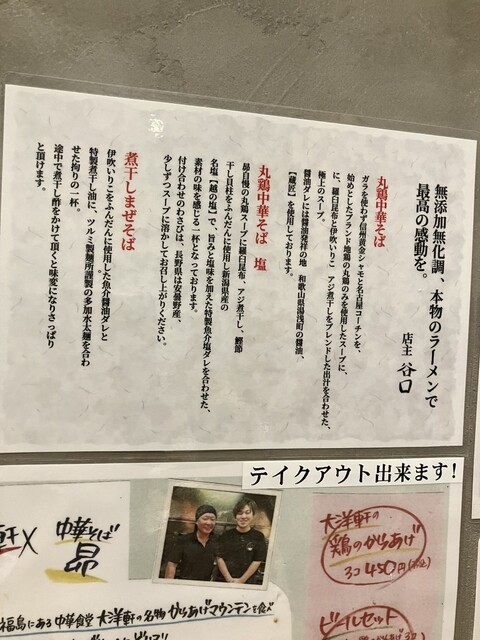 無添加無化調、本物のラーメンで
最高の感動を。
店主 谷口
丸鶏中華そば
ガラを使わず信州黄金シャモと名古屋コーチンを、
始めとしたブランド地鶏の丸鶏のみを使用したスープに、
に、羅臼昆布と伊吹いりこ アジ煮干しをブレンドした出汁を合わせた、
極上のスープ。
醤油ダレには醤油発祥の地 和歌山県湯浅町の醤油、
【蔵匠】を使用しております。
丸鶏中華そば 塩
昴自慢の丸鶏スープに羅臼昆布、アジ煮干し、鰹節
干し貝柱をふんだんに使用し新潟県産の
名塩【越の塩】で、旨みと塩味を加えた特製魚介塩ダレを合わせた、
素材の味を感じる一杯となっております。
付け合わせのわさびは、長野県は安曇野産、
少しずつスープに溶かしてお召し上がりください。
煮干しまぜそば
伊吹いりこをふんだんに使用した魚介醤油ダレと
特製煮干し油に、ツルミ製麺所謹製の多加水太麺を合わ
せた拘りの一杯。
途中で煮干し酢をかけて頂くと味変になりさっぱり
と頂けます。
テイクアウト出来ます!
軒 X 中華そば
昴
大洋軒の
鶏のからあげ
3コ 450円(税込)
ビールセット
福島にある中華食堂 大洋軒の名物 からあげマウンテンを食べ